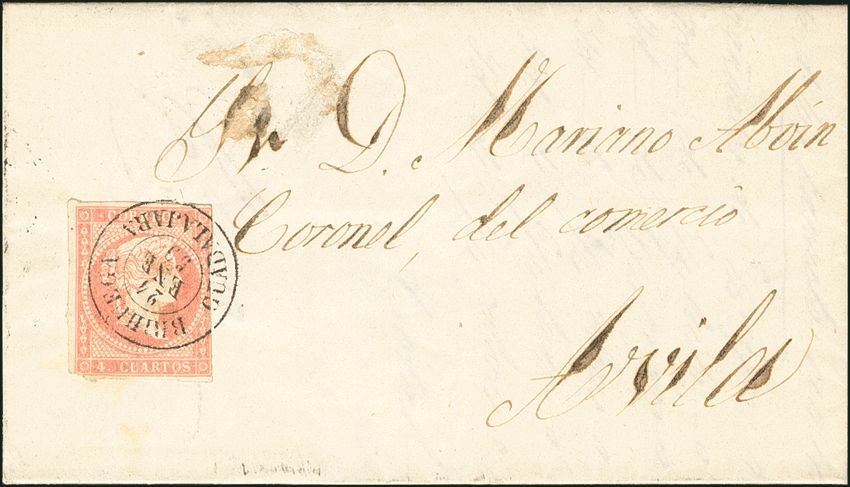 Sr. D. Mariano Albin
Coronel, del comercio
Avila
BRIHUEGA
GUADALAJARA
24
ENE
4 CUARTOS